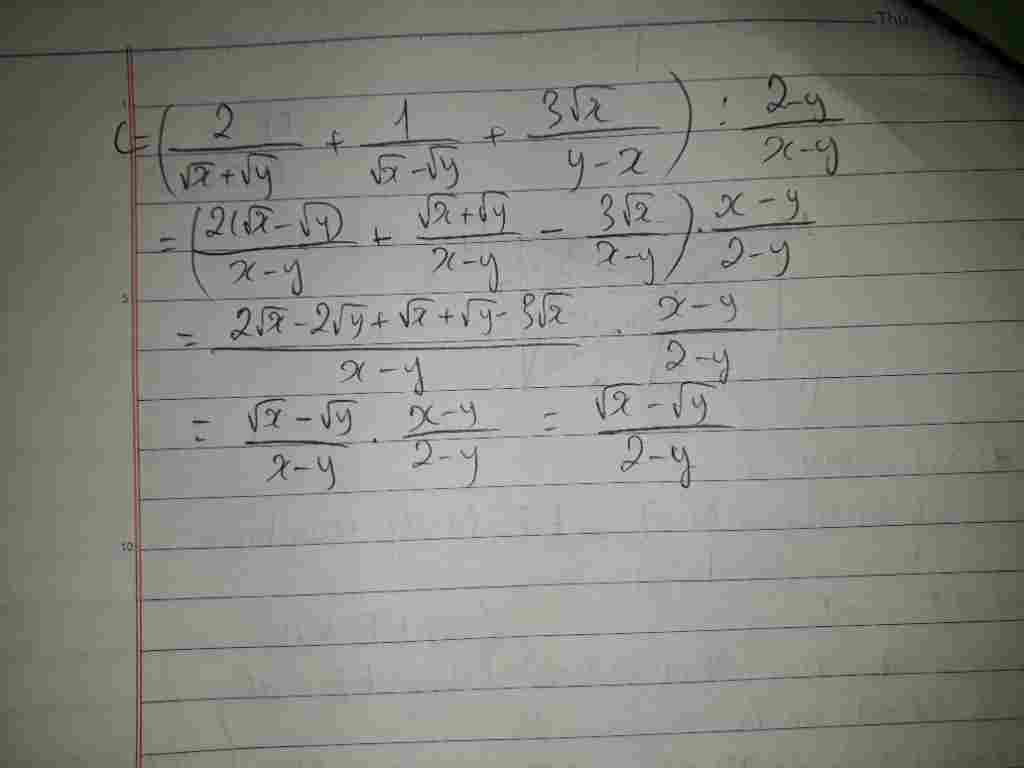 Thu
C = (2/(√x+√y) + 1/(√x-√y) + 3√x/(y-x)) : (2-y)/(x-y)
= (2(√x-√y)/(x-y) + (√x+√y)/(x-y) - 3√x/(x-y)) . (x-y)/(2-y)
5
= (2√x-2√y+√x+√y-3√x)/(x-y) . (x-y)/(2-y)
= (√x-√y)/(x-y) . (x-y)/(2-y) = (√x-√y)/(2-y)
10